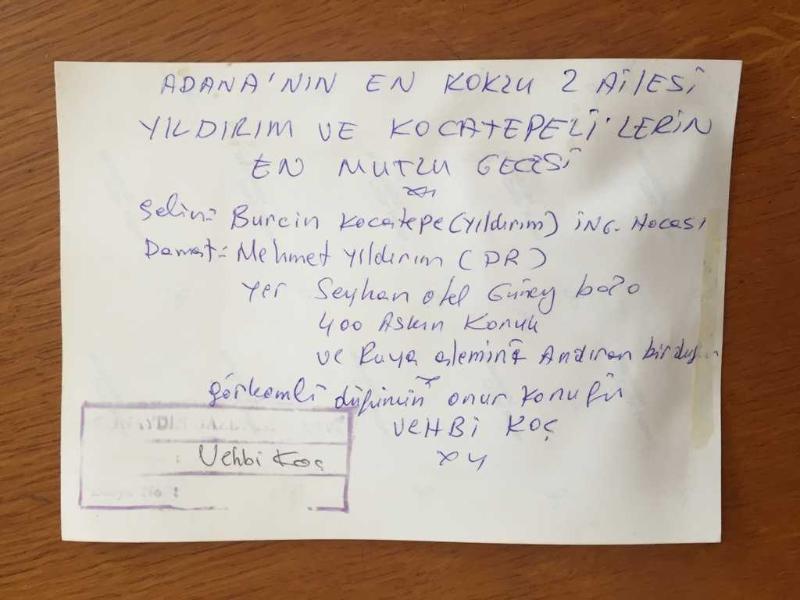 ADANA'NIN EN KOKLU 2 AİLESİ
YILDIRIM VE KOCATEPELİ'LERİN
EN MUTLU GECESİ
Gelin= Burcin Kocatepe (Yıldırım) İNG. Hocası
Damat= Mehmet Yıldırım (DR)
Yer Seyhan otel Güney balo
400 Aşkın Konuk
ve Ruya alemini Andıran bir
görkemli düğünün onur konuğu
VEHBİ KOÇ
Vehbi Koç
No :